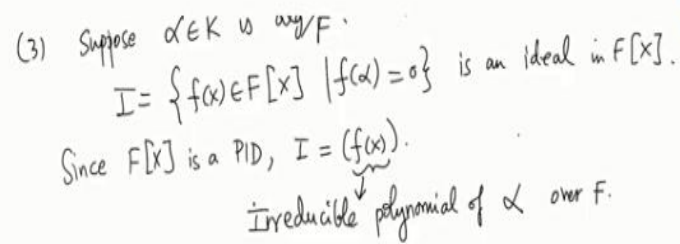 (3) Suppose α∈K is alg/F.
I = {f(x)∈F[x] | f(α)=0} is an ideal in F[x].
Since F[x] is a PID, I = (f(x)).
Irreducible polynomial of α over F.